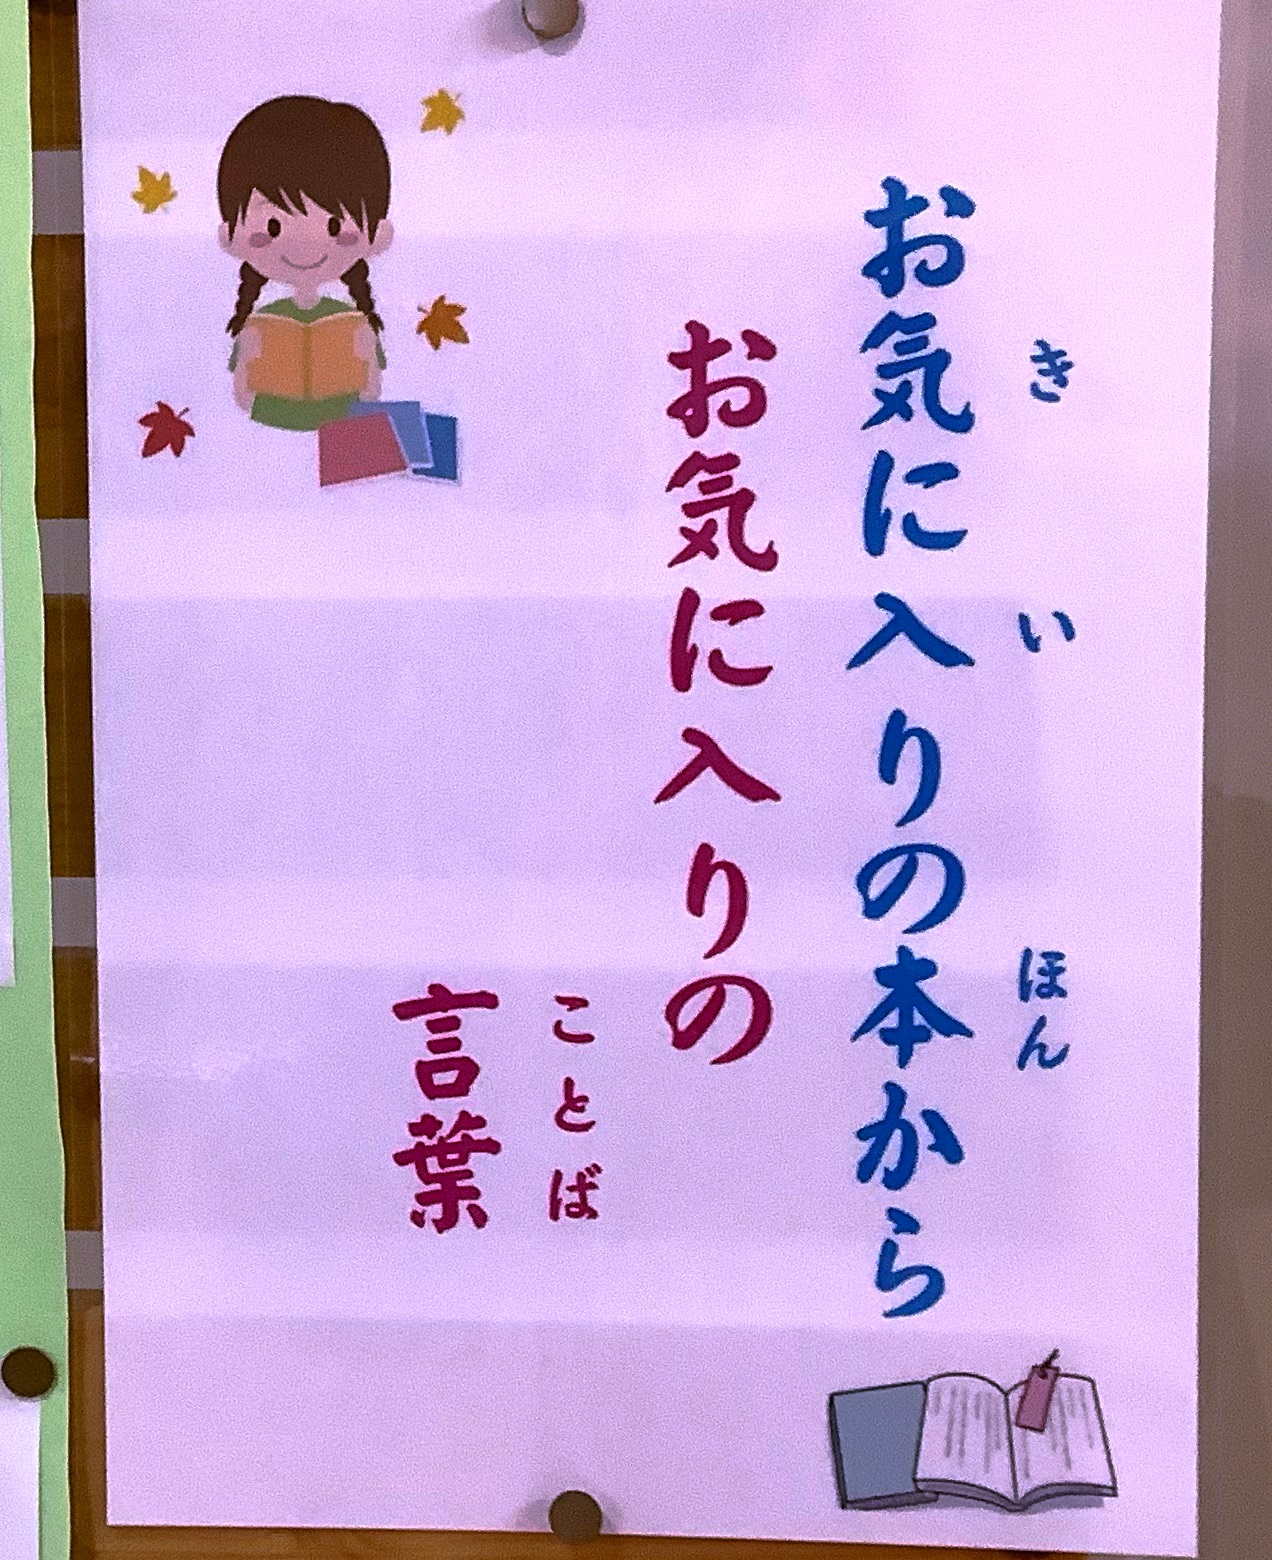 お気に入りの本から
き い ほん
お気に入りの
ことば
言葉